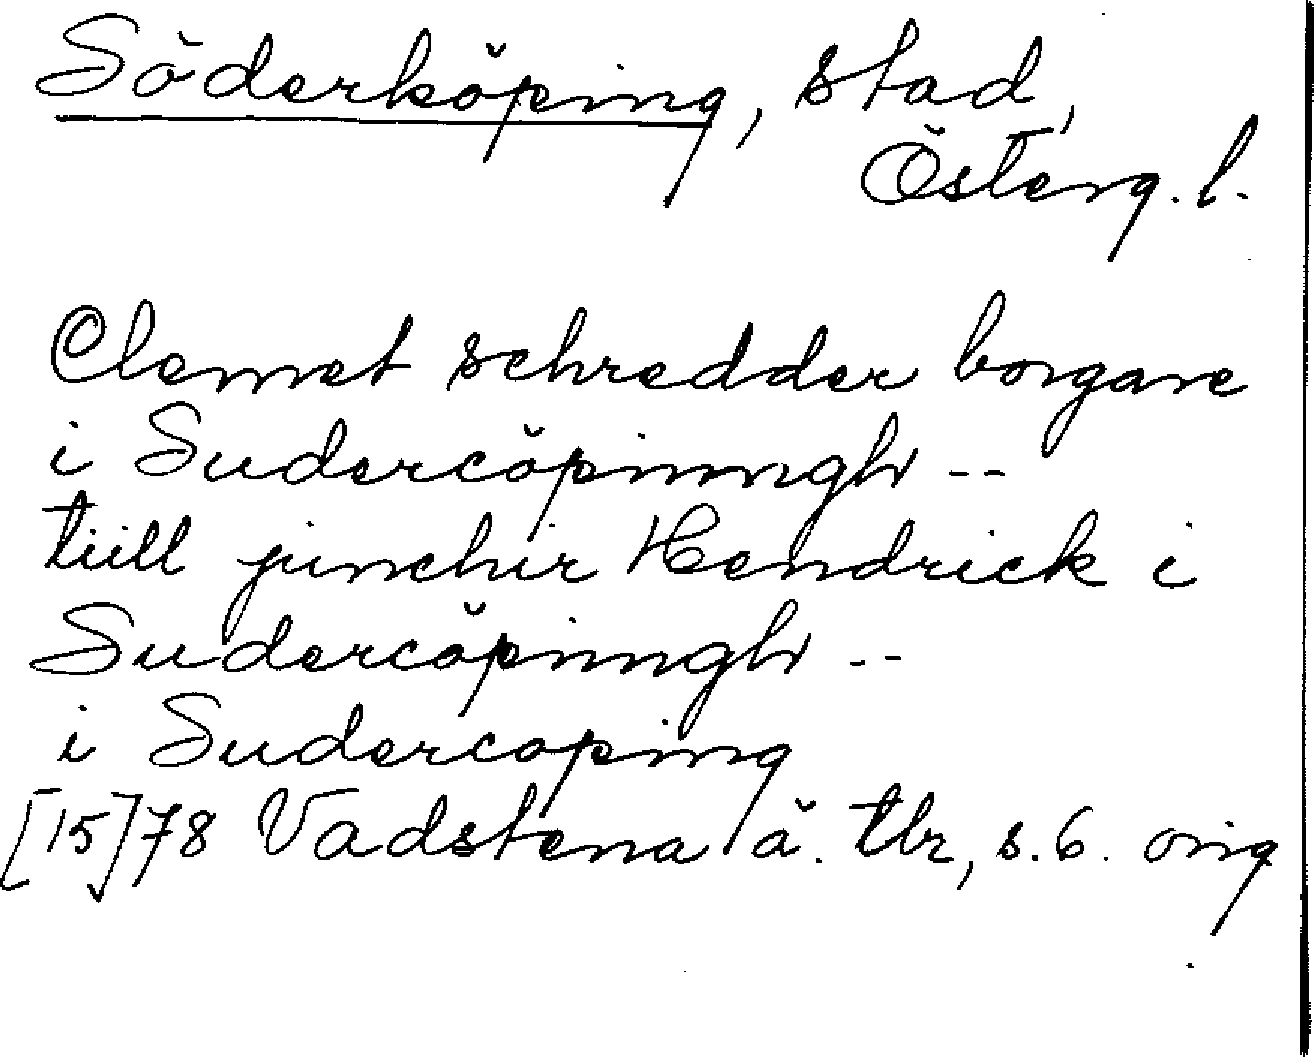 Söderköping, stad,
Österg. l.
Clemet schredder borgare
i Sudercöpinngh --
tiill junchir Hendrick i
Sudercöpinngh --
i Sudercoping
[15]78 Vadstena ä. tbr, s. 6. orig